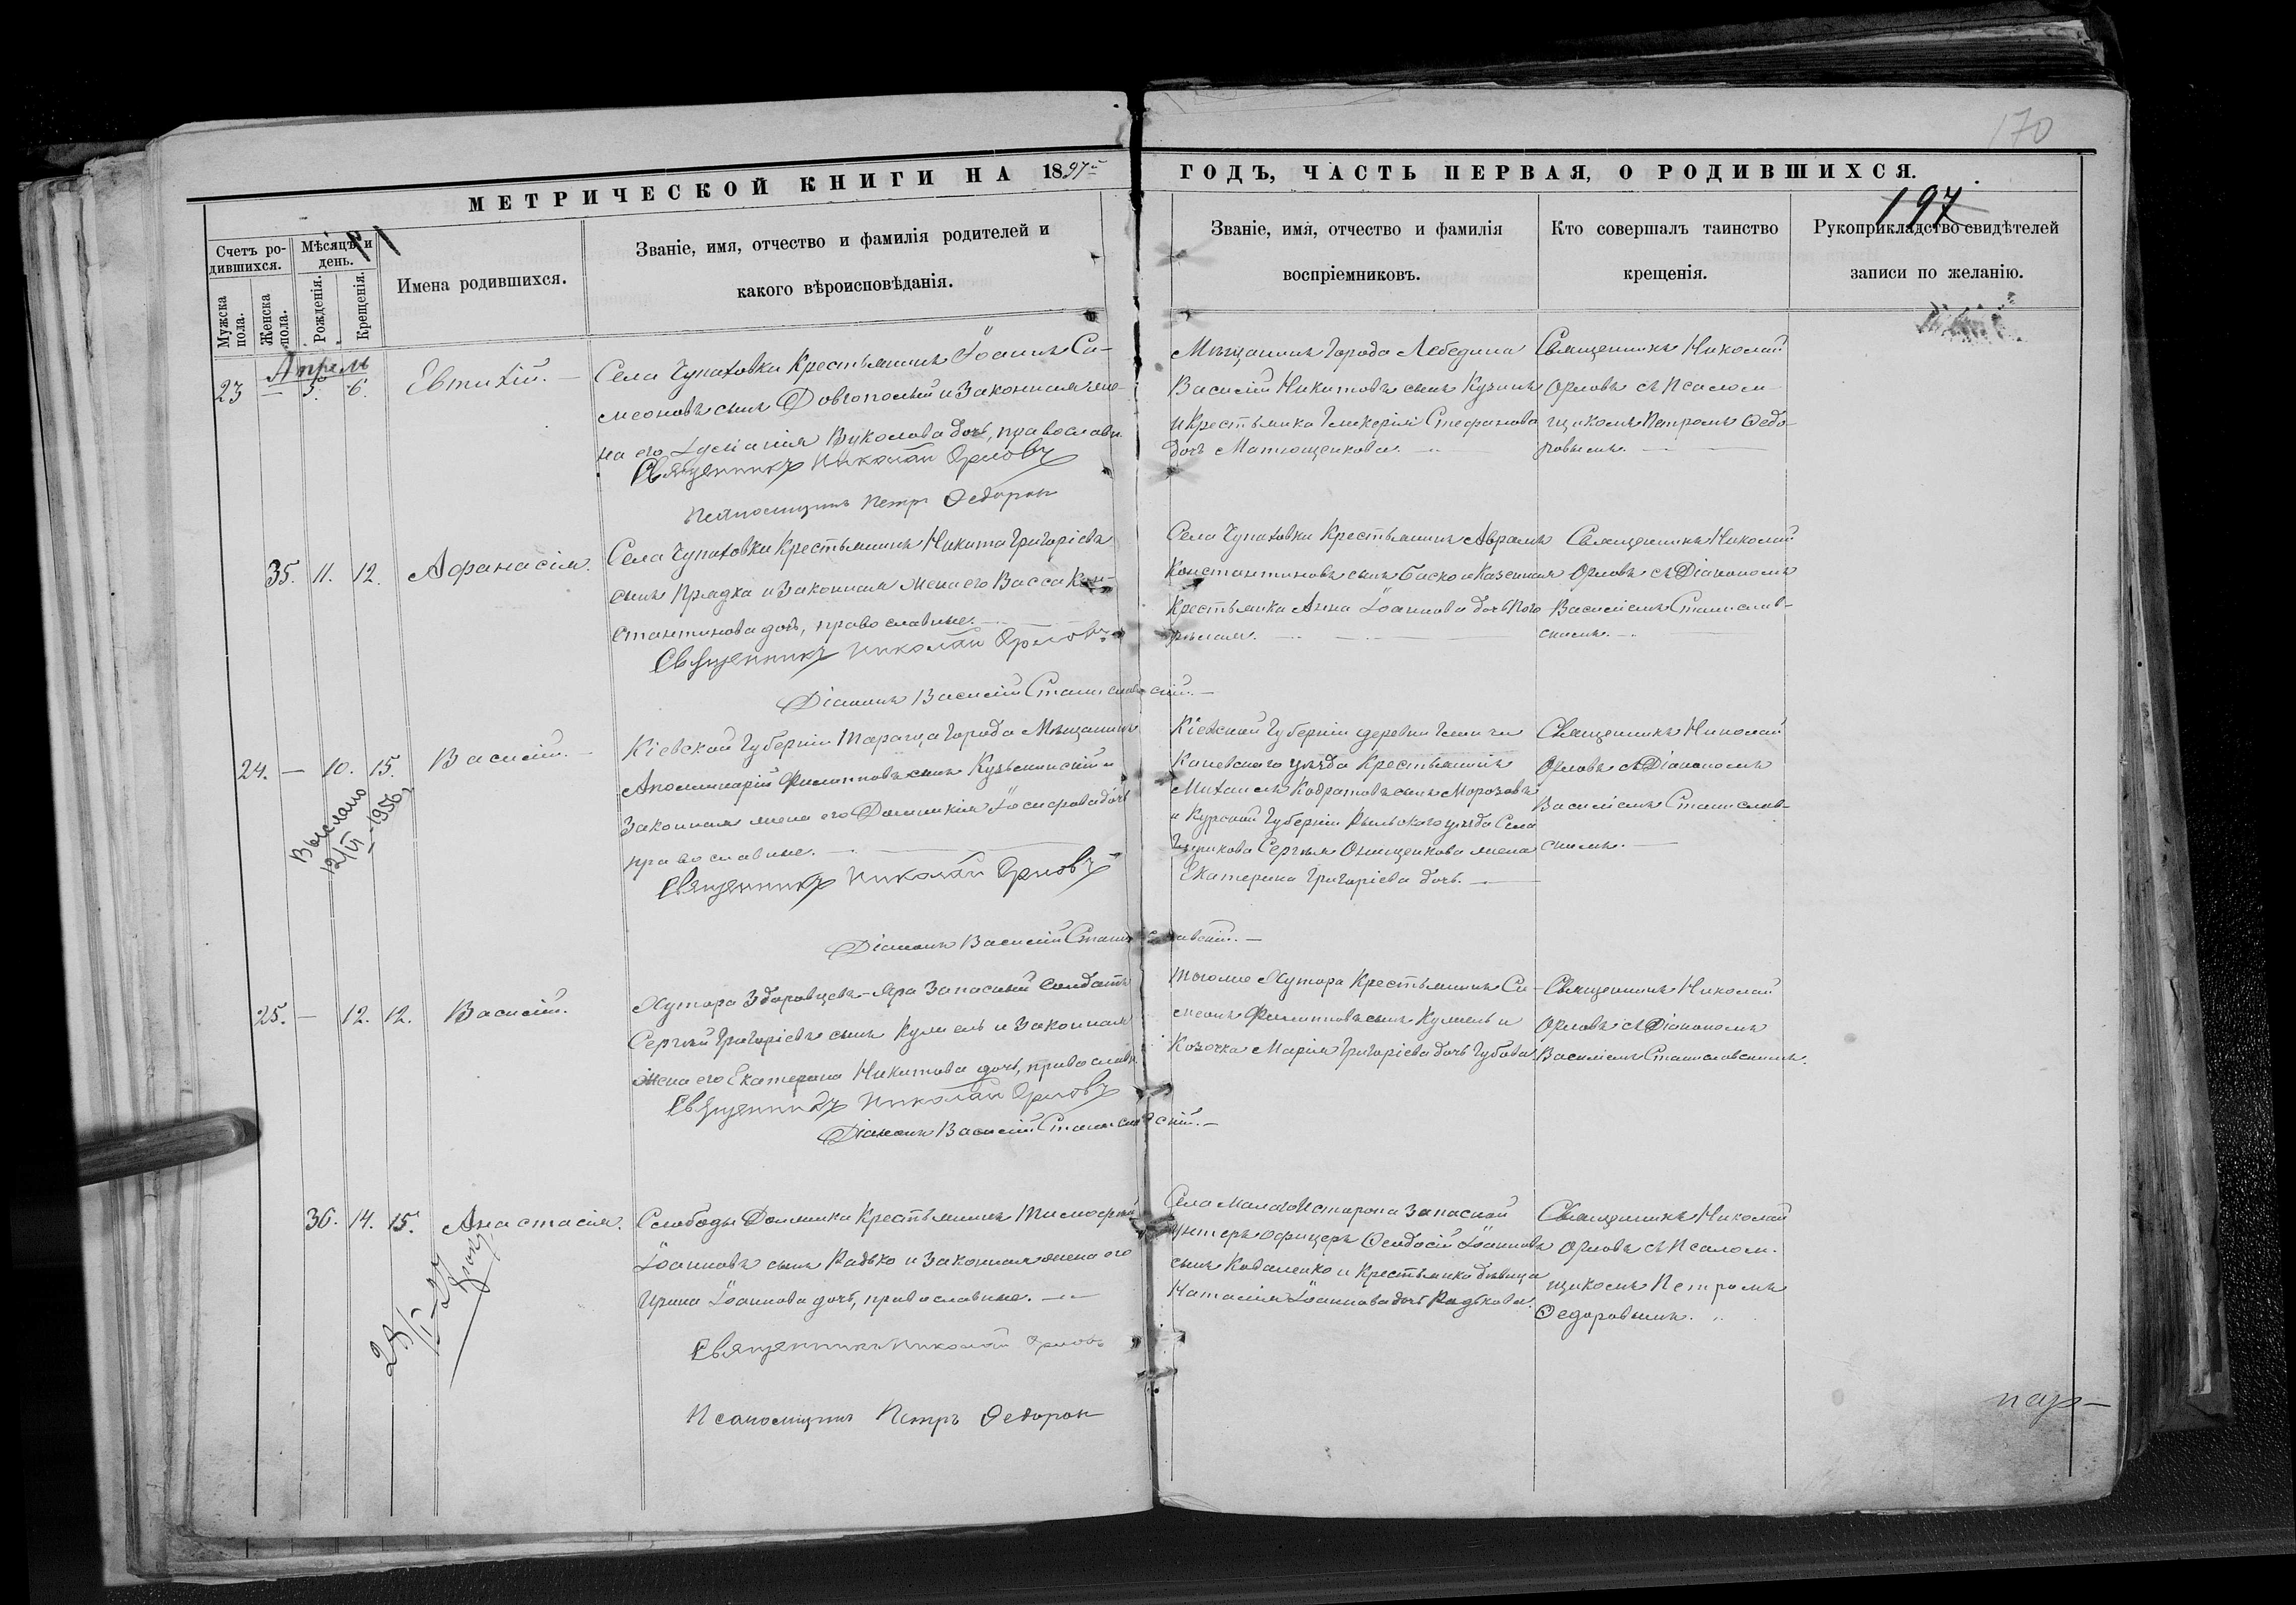 170
МЕТРИЧЕСКОЙ КНИГИ НА 1897 й
ГОДЪ, ЧАСТЬ ПЕРВАЯ, О РОДИВШИХСЯ.
197
Счетъ ро-
дившихся.
Мѣсяцъ и
день.
Мужска
пола.
Женска
пола.
Рожденія.
Крещенія.
Имена родившихся.
Званіе, имя, отчество и фамилія родителей и
какого вѣроисповѣданія.
Званіе, имя, отчество и фамилія
воспріемниковъ.
Кто совершалъ таинство
крещенія.
Рукоприкладство свидѣтелей
записи по желанію.
Апрель
23 — 5. 6. Евтихій. —
Села Чупаховки Крестьянинъ Іоаннъ Си-
меоновъ сынъ Довгополый и Законная же-
на его Вуколова дочь, православн.
Священникъ Николай Орловъ
Псаломщикъ Петръ Федоров
Мѣщанинъ Города Лебедина
Василій Никитовъ сынъ Кузинъ
и Крестьянка Гликерія Стефанова
дочь Матющенкова. —
Священникъ Николай
Орловъ съ Псалом-
щикомъ Петромъ Федо-
ровымъ. —
35. 11. 12. Афанасія.
Села Чупаховки Крестьянинъ Никита Григоріевъ
сынъ Прядка и Законная жена его Васса Кон-
стантинова дочь, православные. —
Священникъ Николай Орловъ
Діаконъ Василій Станиславскій. —
Села Чупаховки Крестьянинъ Аврамъ
Константиновъ сынъ Баско и Казенная
Крестьянка Анна Іоаннова дочь
Священникъ Николай
Орловъ съ Діакономъ
Василіемъ Станислав-
скимъ. —
24. — 10. 15. Василій. —
Выслано
12/VI-1956
Кіевской Губерніи Тараща Города Мѣщанинъ
Аполлинарій Филипповъ сынъ Кузьминскій и
Законная жена его Домникія Іосифова дочь
православные. —
Священникъ Николай Орловъ
Діаконъ Василій Станиславскій. —
Кіевской Губерніи деревни
Каневскаго уѣзда Крестьянинъ
Михаилъ Кодратовъ сынъ Морозовъ
и Курской Губерніи Рыльскаго уѣзда Села
Сергѣя Онищенкова жена
Екатерина Григоріева дочь. —
Священникъ Николай
Орловъ съ Діакономъ
Василіемъ Станислав-
скимъ. —
25. — 12. 12. Василій.
Хутора Здоровцевъ-Яра Запасный Солдатъ
Сергѣй Григоріевъ сынъ Кужель и Законная
Жена его Екатерина Никитова дочь, православн.
Священникъ Николай Орловъ
Діаконъ Василій Станиславскій. —
Тогоже Хутора Крестьянинъ Си-
меонъ Филипповъ сынъ Кужель и
Козачка Марія Григоріева дочь Губова
Священникъ Николай
Орловъ съ Діакономъ
Василіемъ Станиславскимъ.
36. 14. 15. Анастасія.
Слободы Должика Крестьянинъ Тимофей
Іоанновъ сынъ Радько и Законная жена его
Ирина Іоаннова дочь, православные. —
Священникъ Николай Орловъ
Псаломщикъ Петръ Федоров
Села Малаго Исторопа Запасной
Унтеръ офицеръ Феодосій Іоанновъ
сынъ Коваленко и Крестьянка дѣвица
Наталія Іоаннова дочь Радькова.
Священникъ Николай
Орловъ съ Псалом-
щикомъ Петромъ
Федоровымъ.